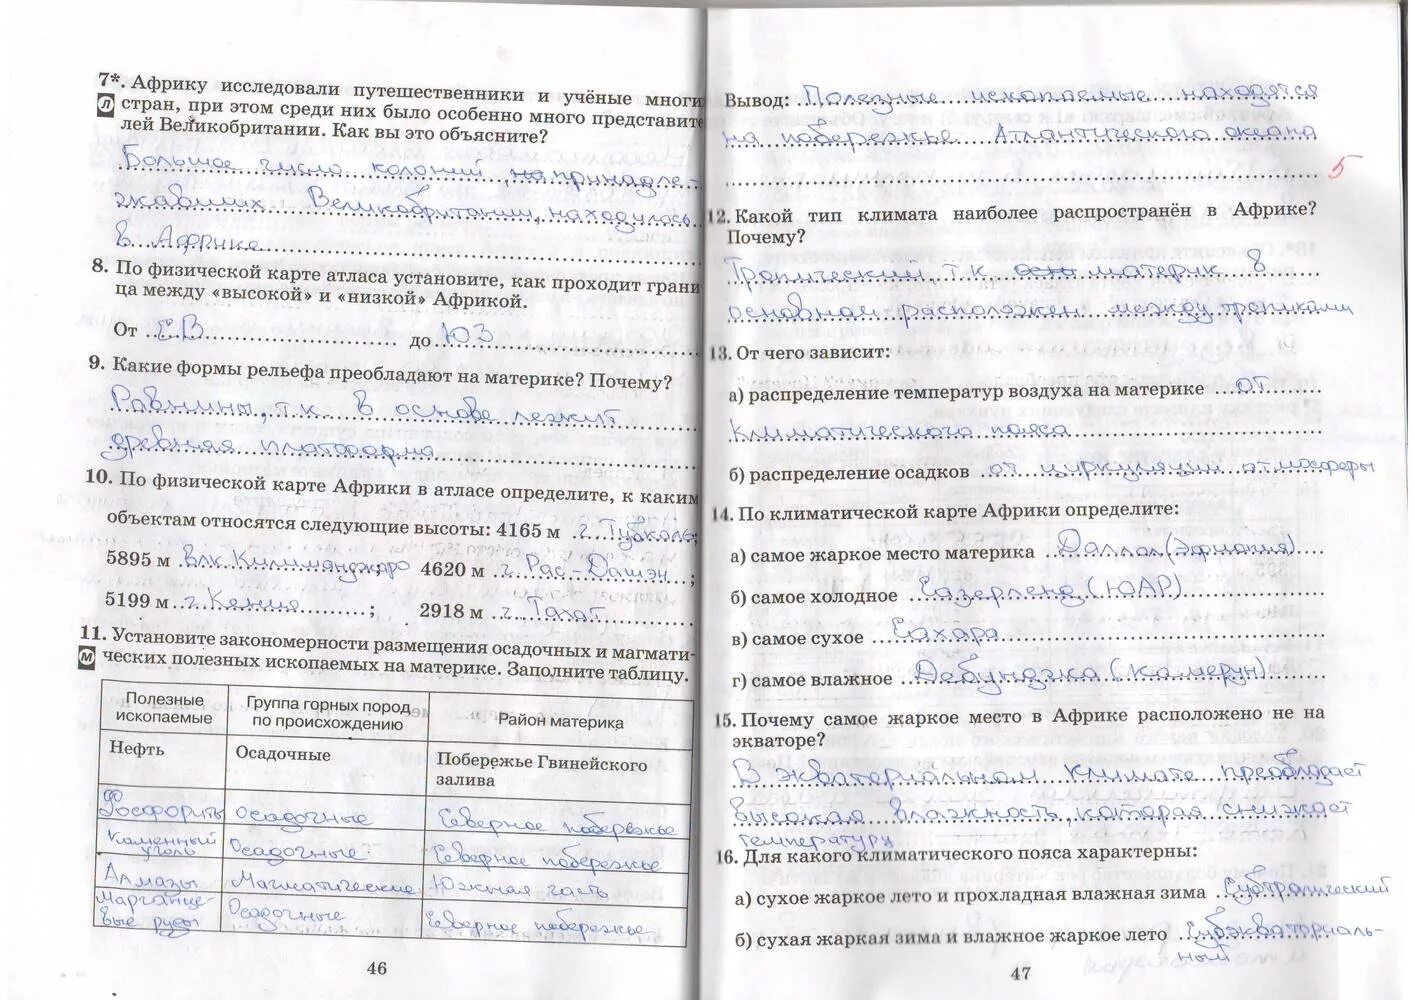 7*. Африку исследовали путешественники и учёные многи
Л стран, при этом среди них было особенно много представите
лей Великобритании. Как вы это объясните?
Большое число колоний, принадле-
жавших Великобритании, находилось
в Африке
8. По физической карте атласа установите, как проходит грани
ца между «высокой» и «низкой» Африкой.
От СВ до ЮЗ
9. Какие формы рельефа преобладают на материке? Почему?
Равнины, т.к. в основе лежит
древняя платформа
10. По физической карте Африки в атласе определите, к каким
объектам относятся следующие высоты: 4165 м г. Тубкаль;
5895 м влк. Килиманджаро 4620 м г. Рас-Дашэн;
5199 м г. Кения; 2918 м г. Тахат
11. Установите закономерности размещения осадочных и магмати-
М ческих полезных ископаемых на материке. Заполните таблицу.
Полезные ископаемые Группа горных пород по происхождению Район материка
Нефть Осадочные Побережье Гвинейского залива
Фосфориты Осадочные Северное побережье
Каменный уголь Осадочные Северное побережье
Алмазы Магматические Южная часть
Марганце-вые руды Осадочные Северное побережье
46
Вывод: Полезные ископаемые находятся
на побережье Атлантического океана
5
12. Какой тип климата наиболее распространён в Африке?
Почему?
Тропический т.к. материк в
основном расположен между тропиками
13. От чего зависит:
а) распределение температур воздуха на материке от
климатического пояса
б) распределение осадков от циркуляции атмосферы
14. По климатической карте Африки определите:
а) самое жаркое место материка Даллол (Эфиопия)
б) самое холодное Сазерленд (ЮАР)
в) самое сухое Сахара
г) самое влажное Дебунджа (Камерун)
15. Почему самое жаркое место в Африке расположено не на
экваторе?
В экваториальном климате преобладает
высокая влажность, которая снижает
температуру
16. Для какого климатического пояса характерны:
а) сухое жаркое лето и прохладная влажная зима Субтропический
б) сухая жаркая зима и влажное жаркое лето Субэкваториаль-
ный
47